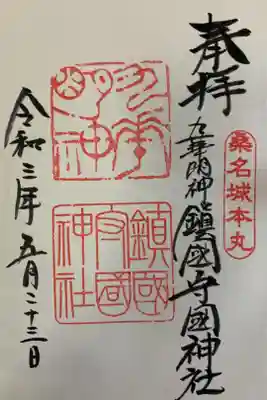 奉拝
桑名城本丸
九華明神 鎮國守國神社
九華明神
鎮國守國神社
令和三年 五月二十三日